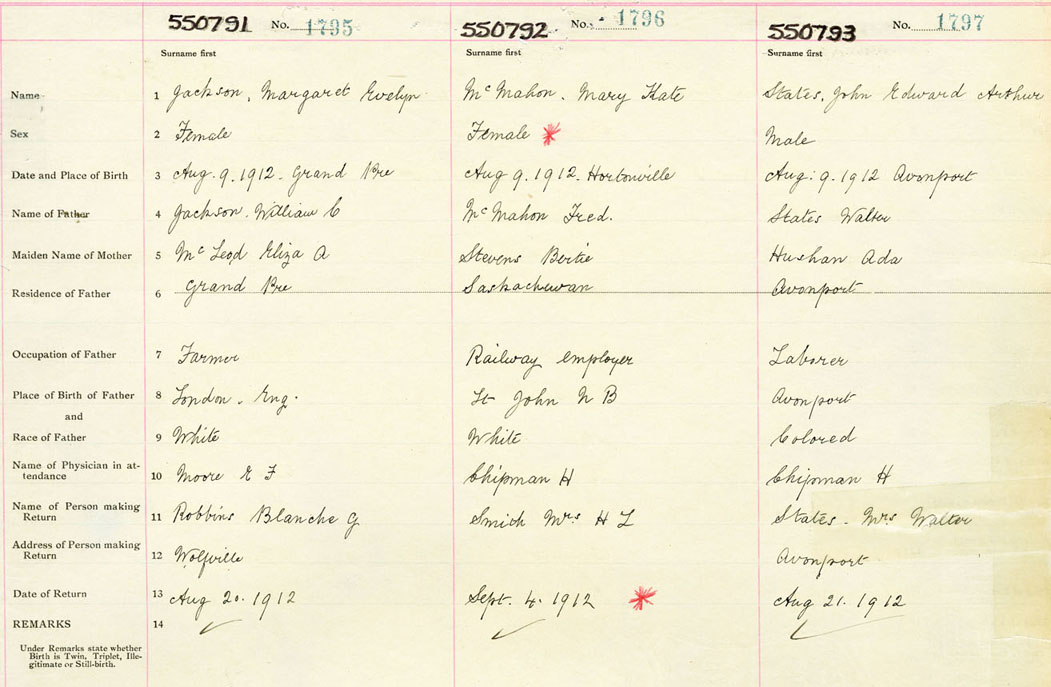 550791 No. 1795 550792 No. 1796 550793 No. 1797
Surname first Surname first Surname first
Name 1 Jackson, Margaret Evelyn McMahon. Mary Kate States, John Edward Arthur
Sex 2 Female Female Male
Date and Place of Birth 3 Aug. 9. 1912. Grand Pre Aug 9. 1912. Hortonville Aug. 9. 1912 Avonport
Name of Father 4 Jackson. William C McMahon Fred. States Walter
Maiden Name of Mother 5 McLeod Eliza A Stevens Bertie Hushan Ada
Residence of Father 6 Grand Pre Saskachewan Avonport
Occupation of Father 7 Farmer Railway employer Laborer
Place of Birth of Father 8 London. Eng. St John N B Avonport
and
Race of Father 9 White White Colored
Name of Physician in at-
tendance 10 Moore E F Chipman H Chipman H
Name of Person making
Return 11 Robbins Blanche G Smith Mrs H L States. Mrs Walter
Address of Person making
Return 12 Wolfville Avonport
Date of Return 13 Aug 20. 1912 Sept. 4. 1912 Aug 21. 1912
REMARKS 14
Under Remarks state whether
Birth is Twin, Triplet, Ille-
gitimate or Still-birth.